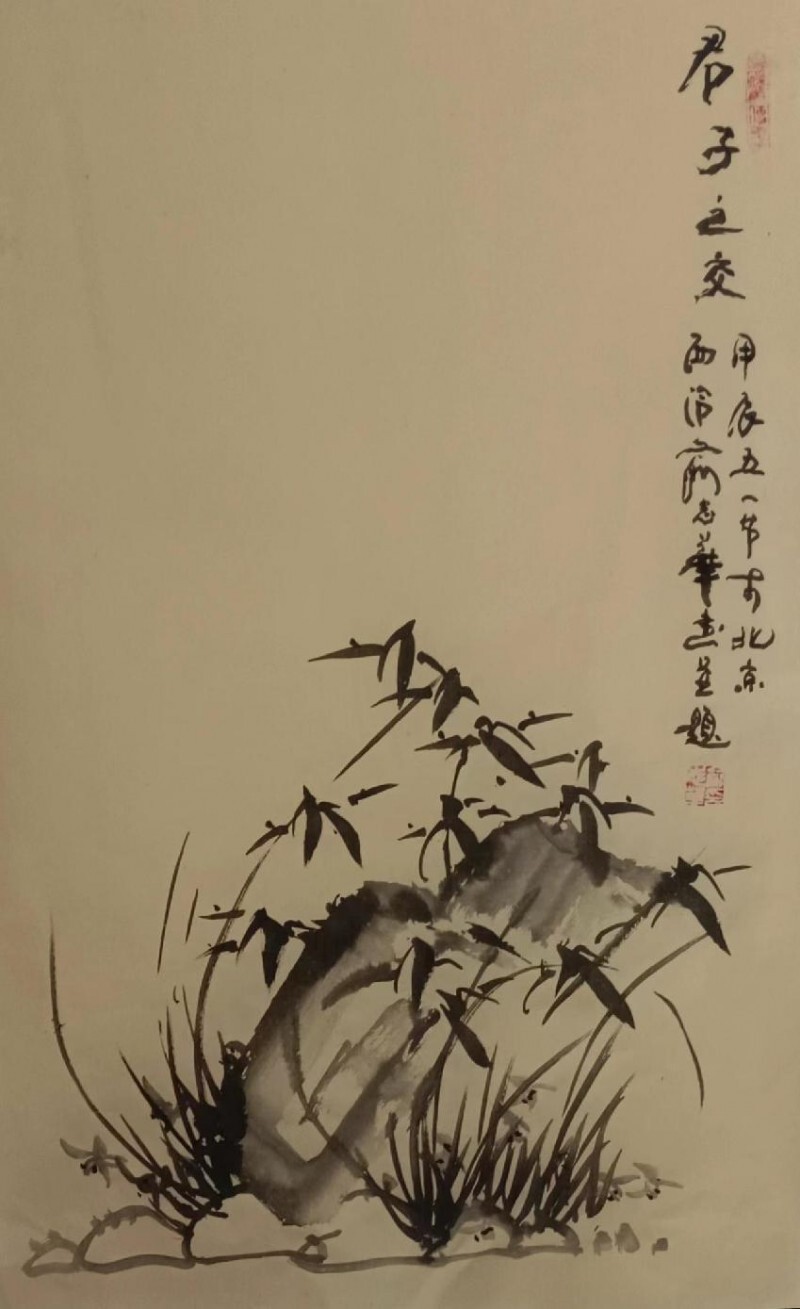 君子之交
甲辰五一节于北京
西泠 志华画并题